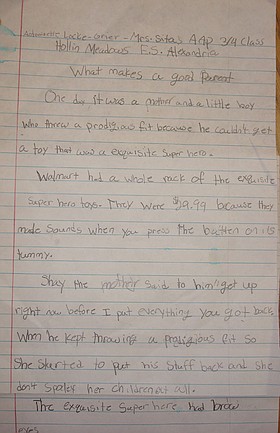 Locke-orier - Mrs. Sitas AAP 3/4 Class
Hollin Meadows E.S. Alexandria
What makes a good parent
One day It was a mother and a little boy
who threw a prodigious fit because he couldn't get
a toy that was a exquisite super hero.
Walmart had a whole rack of the exquisite
super hero toys. They were $19.99 bcause they
made sounds when you press the button on its
tummy.
Shay the mother said to him "get up
right now before I put everything you got back.
When he kept throwing a prodigious fit so
she started to put his stuff back and she
don't spoiler her children at all.
The exquisite super hero had brow
eyes